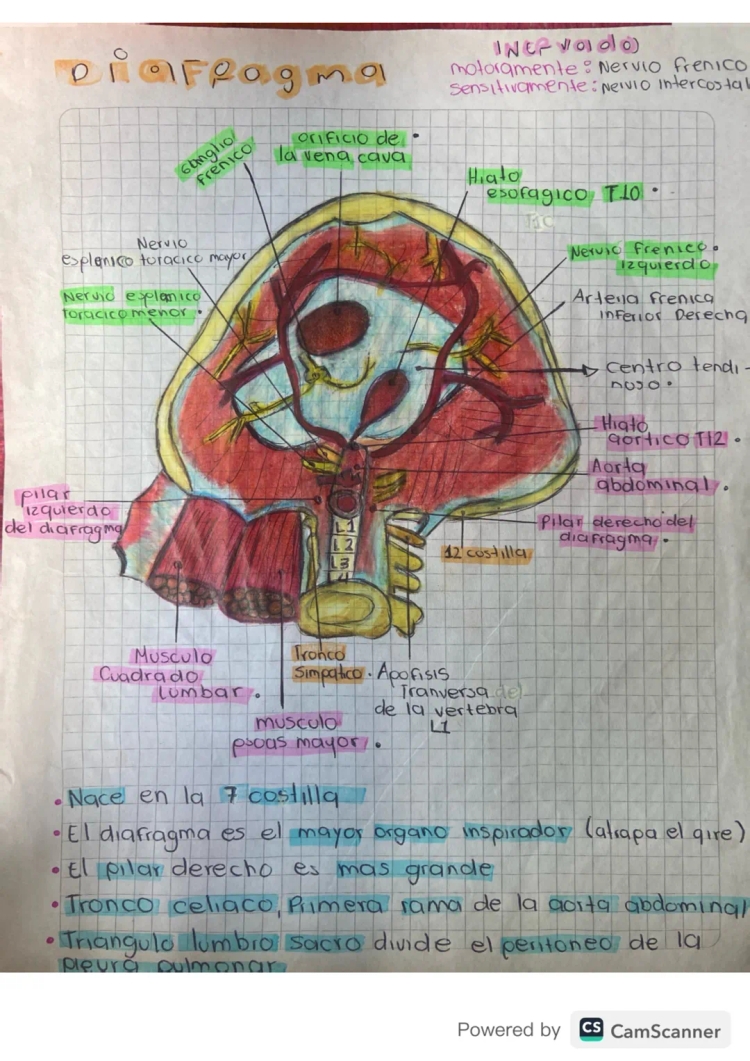 Diafragma
Inervado
motoramente: Nervio frenico
sensitivamente: nervio intercostal
Ganglio
frenico
orificio de
la vena cava
Hiato
esofagico T10
Nervio
esplanico toracico mayor
Nervio frenico
izquierdo
Nervio esplanico
toracico menor
Arteria Frenica
inferior Derecha
centro tendi-
noso
Hiato
aortico T12
Aorta
abdominal
pilar
izquierdo
del diafragma
Pilar derecho del
diafragma
L1
L2
L3
12 costilla
Musculo
Cuadrado
lumbar
Tronco
simpatico
Apofisis
Tranversa del
de la vertebra
L1
musculo
psoas mayor
• Nace en la 7 costilla
• El diafragma es el mayor organo inspirador (atrapa el aire)
• El pilar derecho es mas grande
• Tronco celiaco, Primera rama de la aorta abdominal
• Triangulo lumbro sacro divide el peritoneo de la
pleura pulmonar
Powered by CS CamScanner